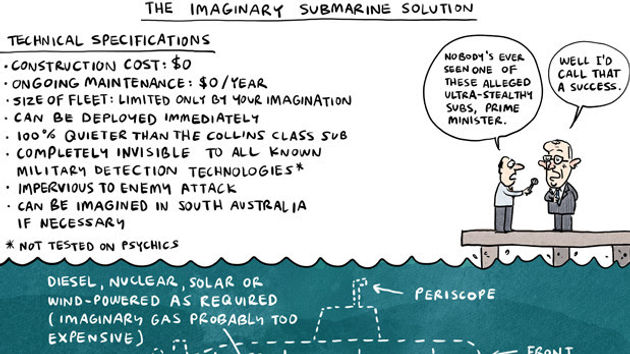 THE IMAGINARY SUBMARINE SOLUTION
TECHNICAL SPECIFICATIONS
• CONSTRUCTION COST: $0
• ONGOING MAINTENANCE: $0/YEAR
• SIZE OF FLEET: LIMITED ONLY BY YOUR IMAGINATION
• CAN BE DEPLOYED IMMEDIATELY
• 100% QUIETER THAN THE COLLINS CLASS SUB
• COMPLETELY INVISIBLE TO ALL KNOWN
MILITARY DETECTION TECHNOLOGIES*
• IMPERVIOUS TO ENEMY ATTACK
• CAN BE IMAGINED IN SOUTH AUSTRALIA
IF NECESSARY
* NOT TESTED ON PSYCHICS
NOBODY'S EVER
SEEN ONE OF
THESE ALLEGED
ULTRA-STEALTHY
SUBS, PRIME
MINISTER.
WELL I'D
CALL THAT
A SUCCESS.
DIESEL, NUCLEAR, SOLAR OR
WIND-POWERED AS REQUIRED
(IMAGINARY GAS PROBABLY TOO
EXPENSIVE)
PERISCOPE
FRONT